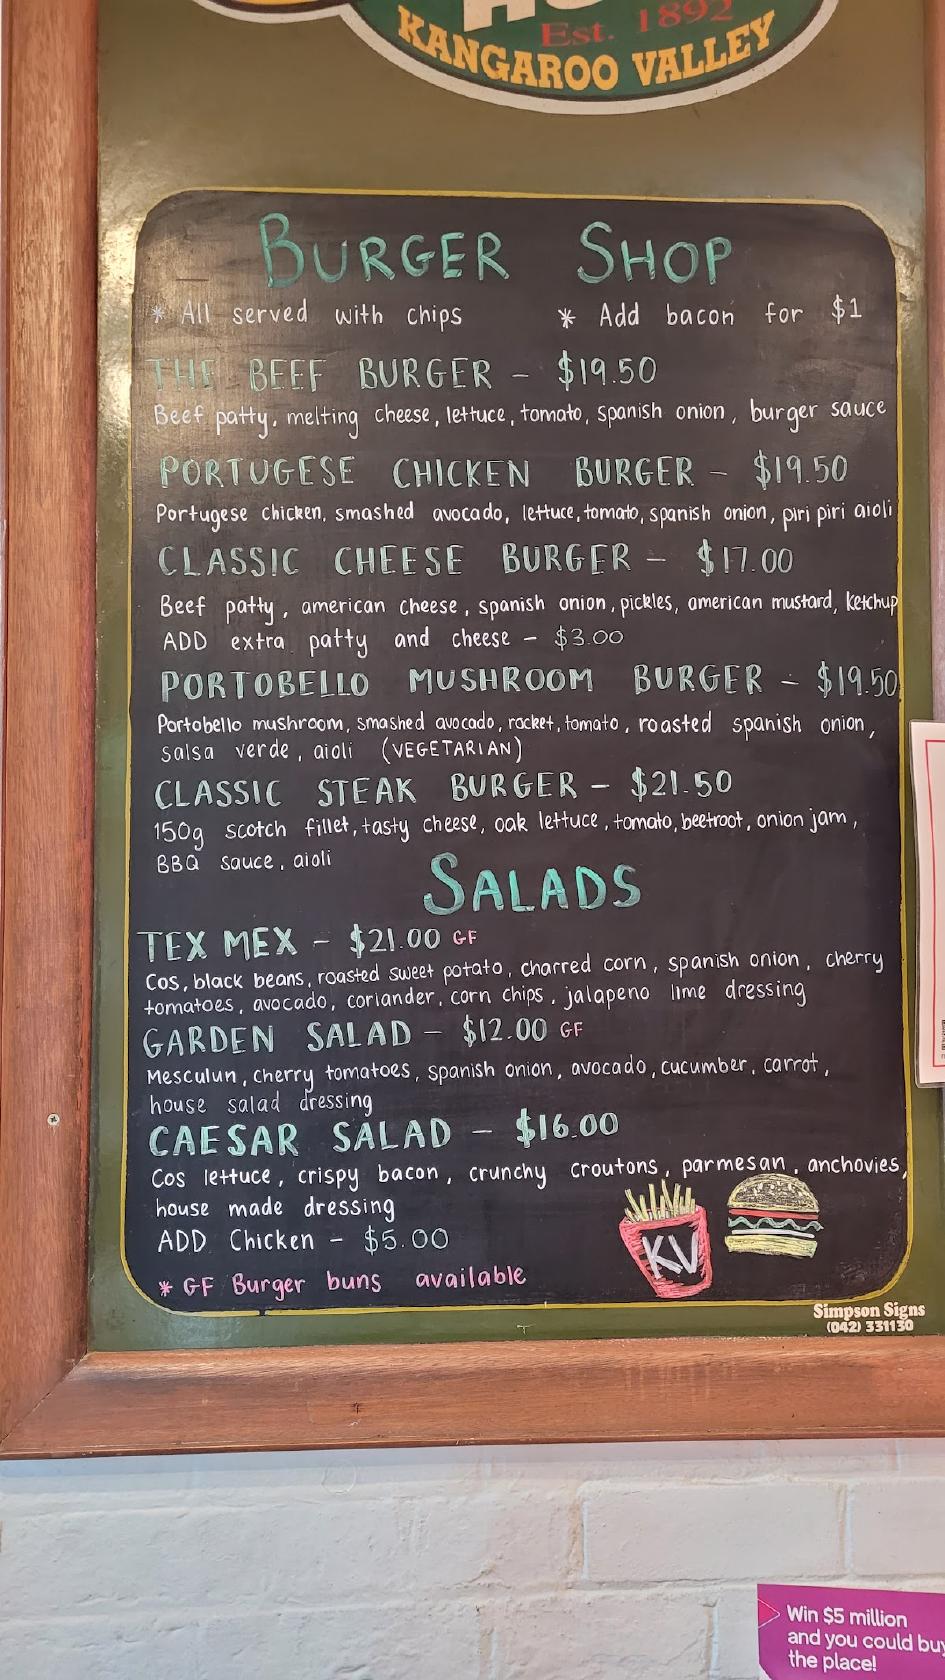 Est. 1892
KANGAROO VALLEY
BURGER SHOP
* All served with chips * Add bacon for $1
THE BEEF BURGER - $19.50
Beef patty, melting cheese, lettuce, tomato, spanish onion, burger sauce
PORTUGESE CHICKEN BURGER - $19.50
Portugese chicken, smashed avocado, lettuce, tomato, spanish onion, piri piri aioli
CLASSIC CHEESE BURGER - $17.00
Beef patty, american cheese, spanish onion, pickles, american mustard, ketchup
ADD extra patty and cheese - $3.00
PORTOBELLO MUSHROOM BURGER - $19.50
Portobello mushroom, smashed avocado, rocket, tomato, roasted spanish onion,
salsa verde, aioli (VEGETARIAN)
CLASSIC STEAK BURGER - $21.50
150g scotch fillet, tasty cheese, oak lettuce, tomato, beetroot, onion jam,
BBQ sauce, aioli
SALADS
TEX MEX - $21.00 GF
Cos, black beans, roasted sweet potato, charred corn, spanish onion, cherry
tomatoes, avocado, coriander, corn chips, jalapeno lime dressing
GARDEN SALAD - $12.00 GF
Mesculun, cherry tomatoes, spanish onion, avocado, cucumber, carrot,
house salad dressing
CAESAR SALAD - $16.00
Cos lettuce, crispy bacon, crunchy croutons, parmesan, anchovies,
house made dressing
ADD Chicken - $5.00
KV
* GF Burger buns available
Simpson Signs
(042) 331130
Win $5 million
and you could buy
the place!